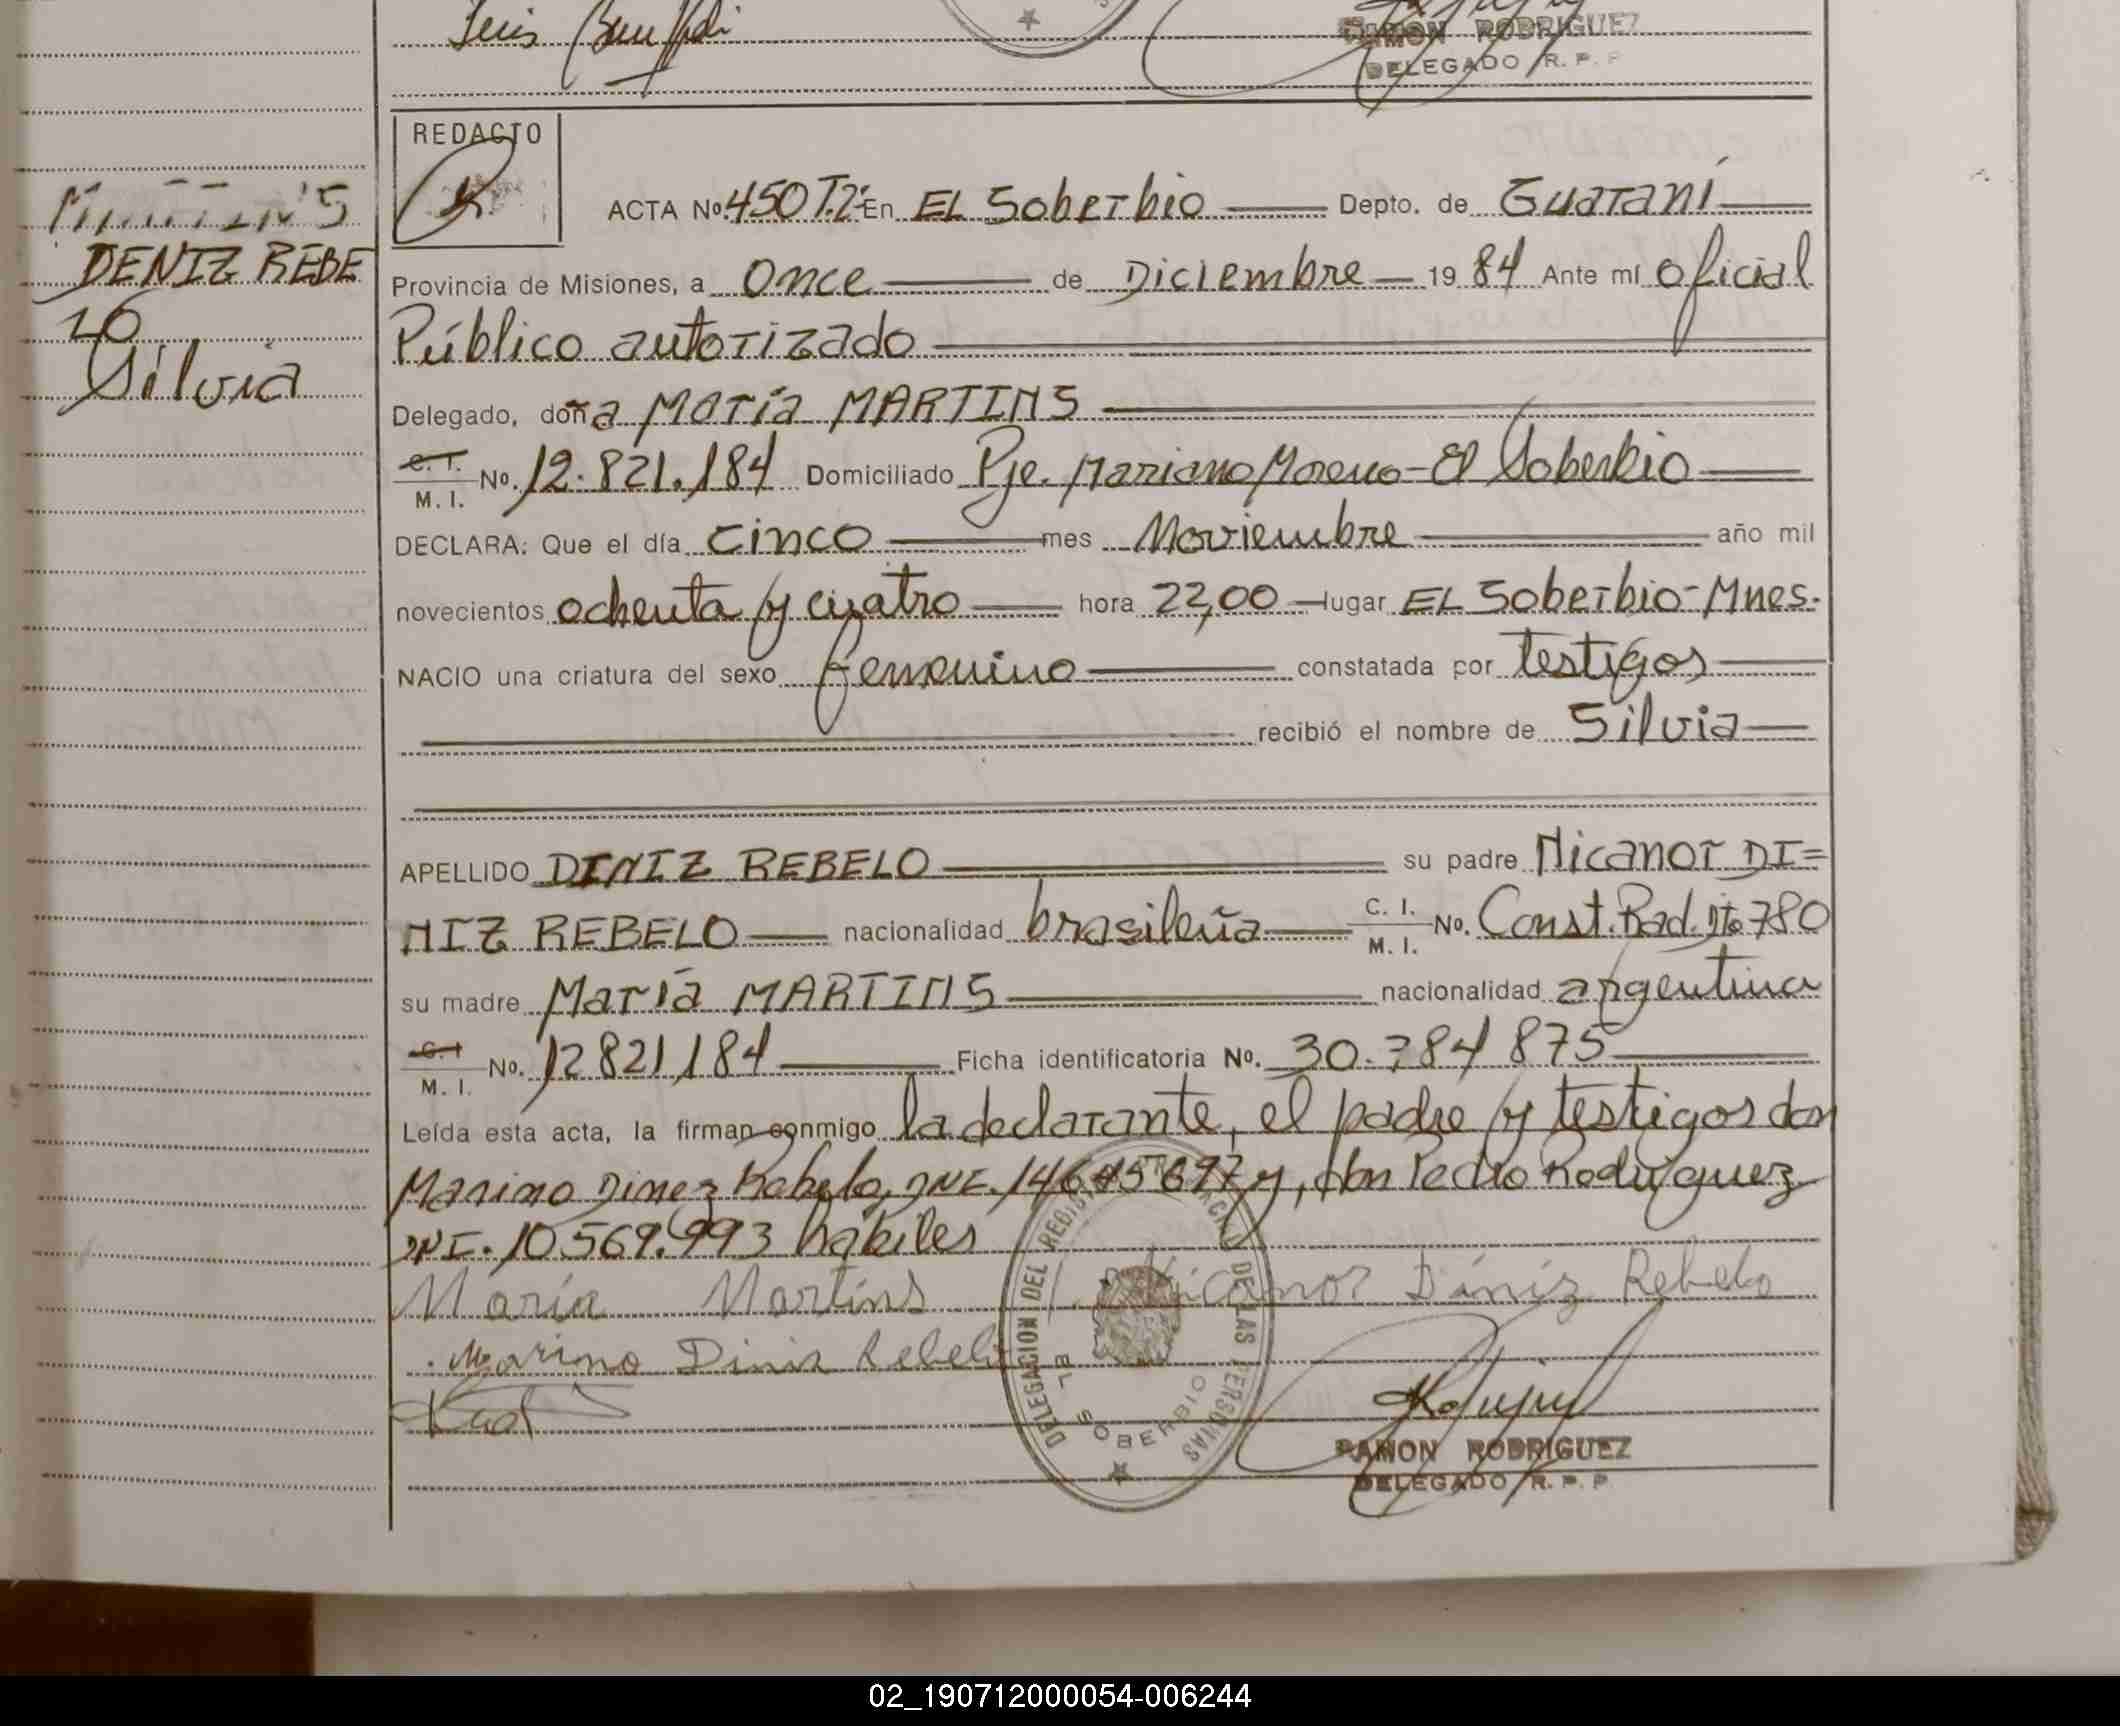 Luis
RAMON RODRIGUEZ
DELEGADO R. P. P
REDACTO
MARTINS
DENIZ REBE
LO
Silvia
ACTA Nº 450 T.2º En EL Soberbio Depto. de Guaraní
Provincia de Misiones, a Once de Diciembre 19 84 Ante mí oficial
Público autorizado
Delegado, doña María MARTINS
C. I. M. I. Nº. 12.821.184 Domiciliado Pje. Mariano Moreno - El Soberbio
DECLARA: Que el día cinco mes Noviembre año mil
novecientos ochenta y cuatro hora 22,00 lugar EL Soberbio - Mnes.
NACIO una criatura del sexo femenino constatada por testigos
recibió el nombre de Silvia
APELLIDO DINIZ REBELO su padre Nicanor DI=
NIZ REBELO nacionalidad brasileña C. I. M. I. Nº. Const. Rad. Nº 780
su madre María MARTINS nacionalidad argentina
C. I M. I. Nº. 12821184 Ficha identificatoria Nº. 30.784 875
Leída esta acta, la firman conmigo la declarante, el padre y testigos don
Marino Dinez Rebelo, DNI. 14645697 y, don Pedro Rodriguez
DNI. 10.569.993 hábiles
María Martins Nicanor Díniz Rebelo
Marino Diniz Rebelo
DELEGACION DEL REGISTRO DE LAS PERSONAS
EL SOBERBIO
RAMON RODRIGUEZ
DELEGADO R. P. P
02_190712000054-006244